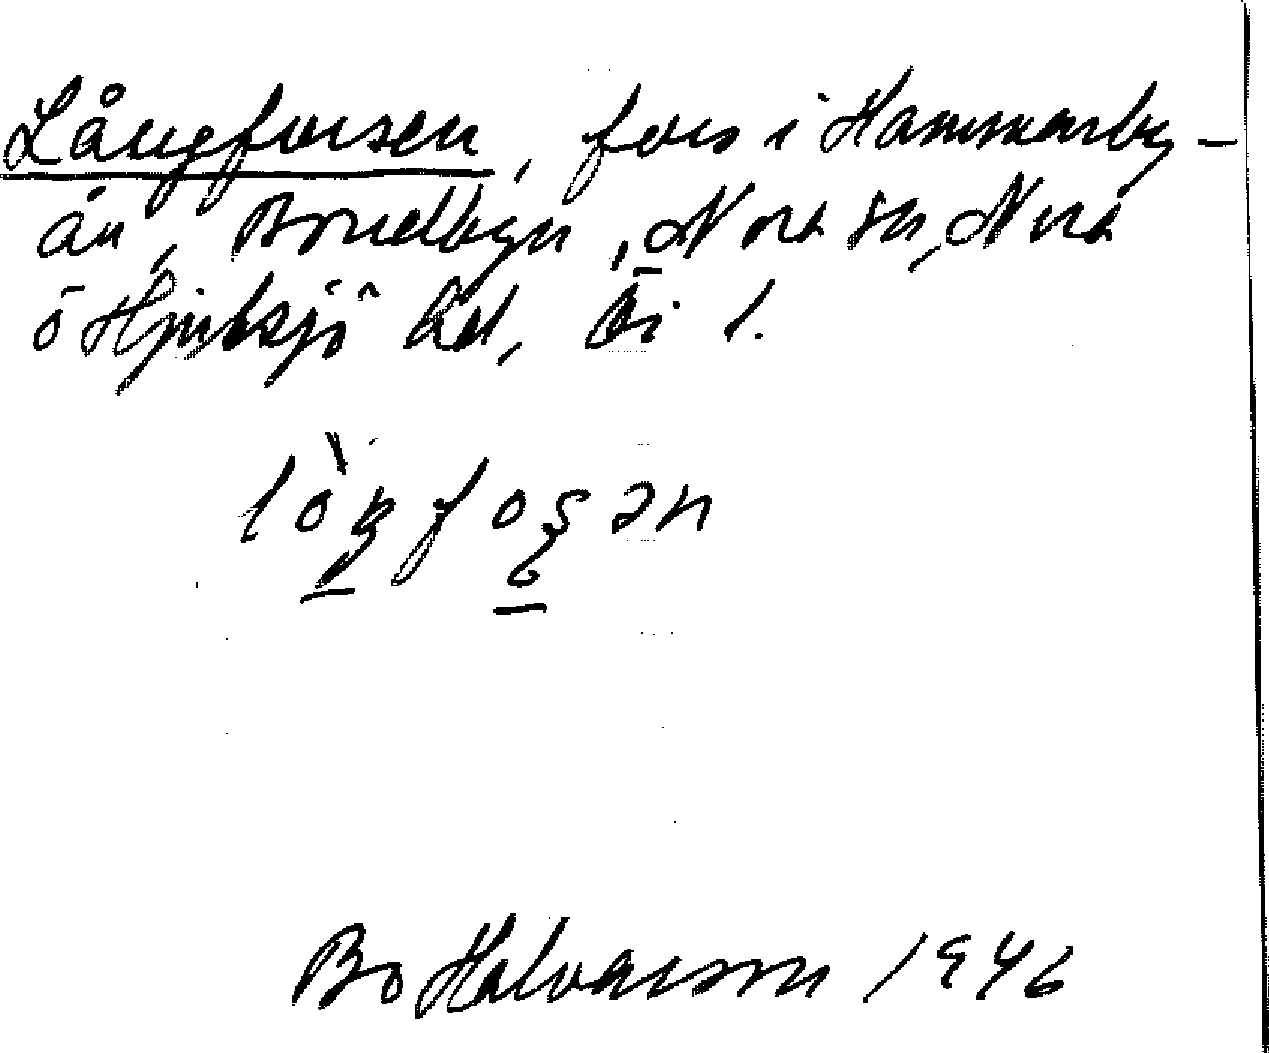 Långforsen, fors i Hammarby-
ån, Bondbyn, Nora sn, Nora
o Hjulsjö bd, Ör l.
lòŋfoʂən
Bo Halvarson 1946